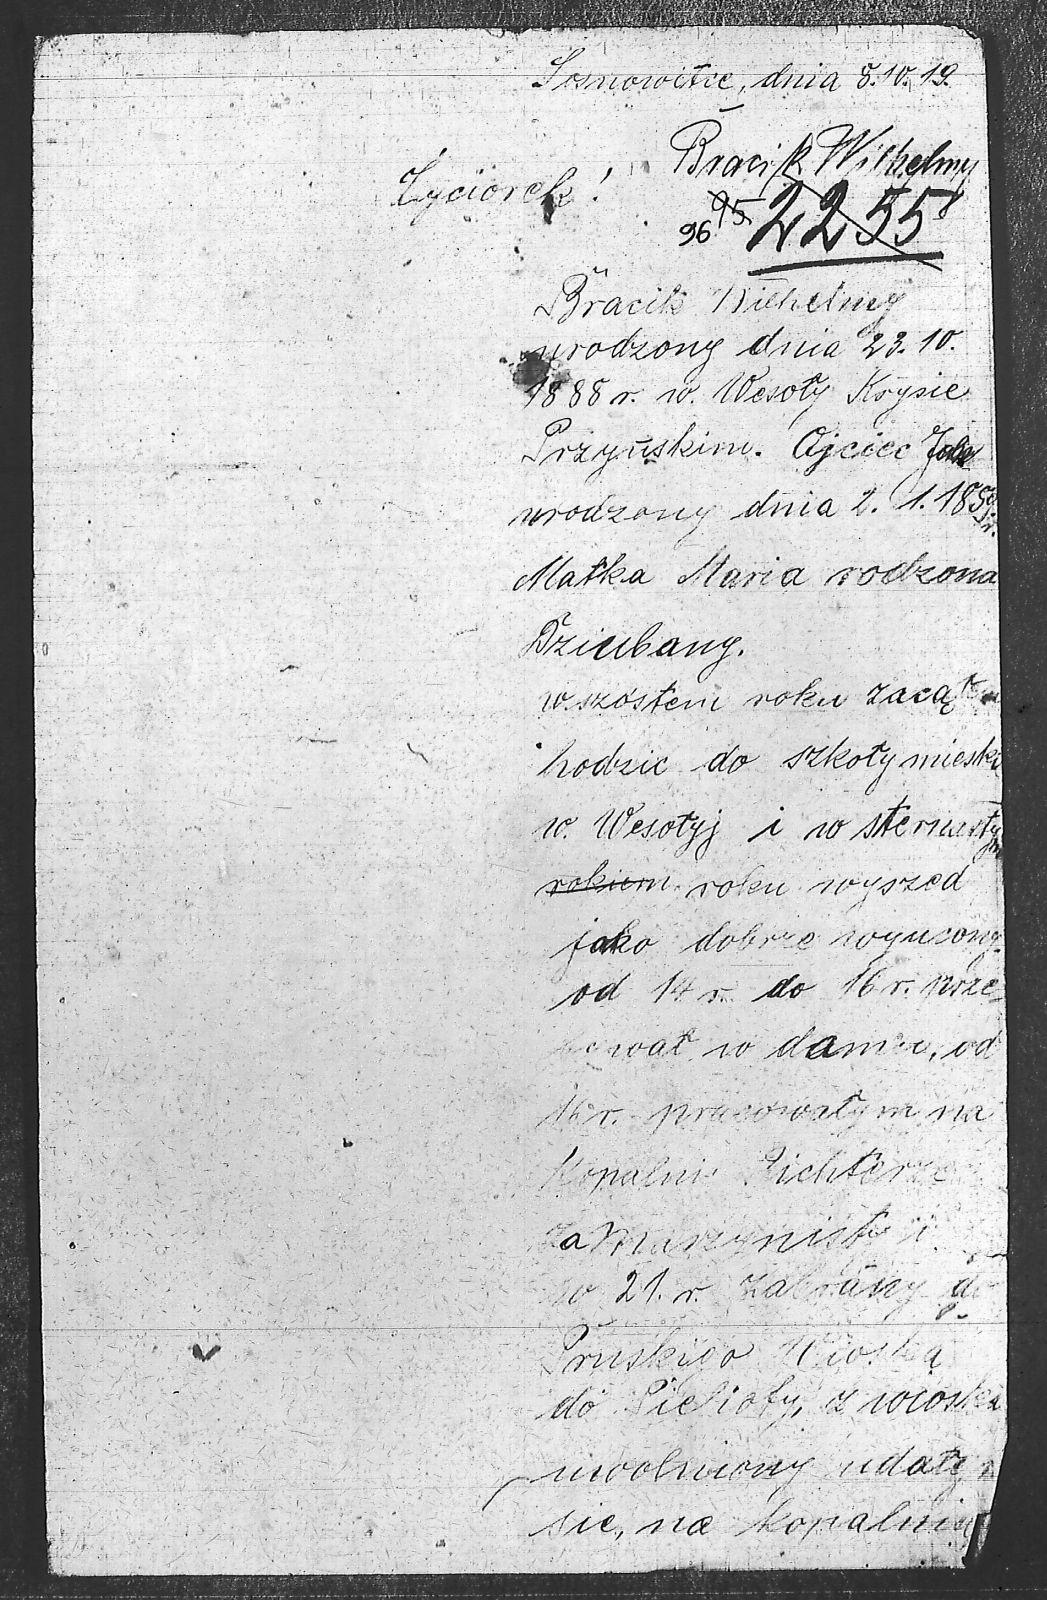 Sosnowitce, dnia 8.10.19.
Bracik Wilhelmy
Życiorek!
96 95 2255
Bracik Wilhelmy
urodzony dnia 23.10.
1888 r. w. Wesoły Krysie
Przyuskim. Ojciec
urodzony dnia 2. 1. 185
Matka Maria rodzona
Dziubany.
w szóstem roku zacą
hodzic do szkoły miesk
w. Wesołyj i w sternasty
rokiem roku wyszed
jako dobrze wyuczony
od 14 r. do 16 r. prze
wał w damu, od
16 r. pracowałym na
Kopalni Richterze
za marzynistę i
w 21. r. zabrany do
Pruskigo Wioska
do Pichioty, z wioska
uwolniony udały
sie, na kopalnię